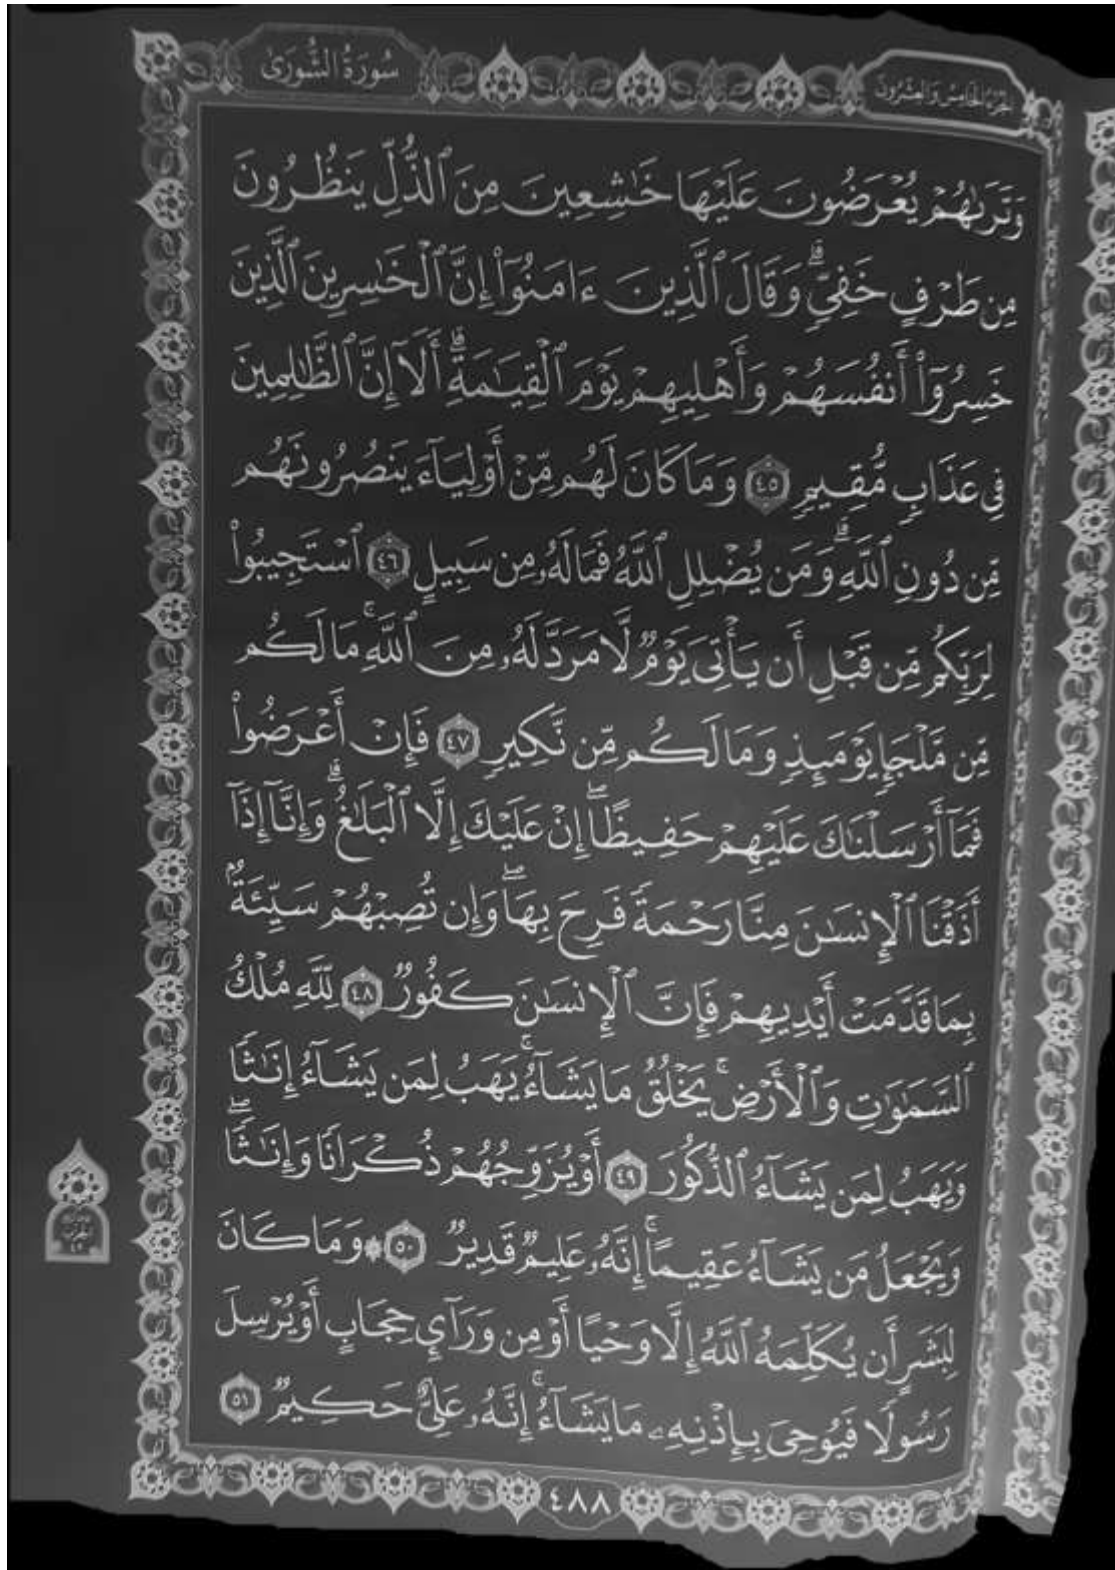 الجزء الخامس والعشرون
سُورَةُ الشُّورَىٰ
وَتَرَىٰهُمْ يُعْرَضُونَ عَلَيْهَا خَٰشِعِينَ مِنَ ٱلذُّلِّ يَنظُرُونَ
مِن طَرْفٍ خَفِيٍّۗ وَقَالَ ٱلَّذِينَ ءَامَنُوٓاْ إِنَّ ٱلْخَٰسِرِينَ ٱلَّذِينَ
خَسِرُوٓاْ أَنفُسَهُمْ وَأَهْلِيهِمْ يَوْمَ ٱلْقِيَٰمَةِۗ أَلَآ إِنَّ ٱلظَّٰلِمِينَ
فِى عَذَابٍ مُّقِيمٍ ٤٥ وَمَا كَانَ لَهُم مِّنْ أَوْلِيَآءَ يَنصُرُونَهُم
مِّن دُونِ ٱللَّهِۗ وَمَن يُضْلِلِ ٱللَّهُ فَمَا لَهُۥ مِن سَبِيلٍ ٤٦ ٱسْتَجِيبُواْ
لِرَبِّكُم مِّن قَبْلِ أَن يَأْتِىَ يَوْمٌ لَّا مَرَدَّ لَهُۥ مِنَ ٱللَّهِۚ مَا لَكُم
مِّن مَّلْجَإٍ يَوْمَئِذٍ وَمَا لَكُم مِّن نَّكِيرٍ ٤٧ فَإِنْ أَعْرَضُواْ
فَمَآ أَرْسَلْنَٰكَ عَلَيْهِمْ حَفِيظًاۖ إِنْ عَلَيْكَ إِلَّا ٱلْبَلَٰغُۗ وَإِنَّآ إِذَآ
أَذَقْنَا ٱلْإِنسَٰنَ مِنَّا رَحْمَةً فَرِحَ بِهَاۖ وَإِن تُصِبْهُمْ سَيِّئَةٌۢ
بِمَا قَدَّمَتْ أَيْدِيهِمْ فَإِنَّ ٱلْإِنسَٰنَ كَفُورٌ ٤٨ لِّلَّهِ مُلْكُ
ٱلسَّمَٰوَٰتِ وَٱلْأَرْضِۚ يَخْلُقُ مَا يَشَآءُۚ يَهَبُ لِمَن يَشَآءُ إِنَٰثًا
وَيَهَبُ لِمَن يَشَآءُ ٱلذُّكُورَ ٤٩ أَوْ يُزَوِّجُهُمْ ذُكْرَانًا وَإِنَٰثًاۖ
وَيَجْعَلُ مَن يَشَآءُ عَقِيمًاۚ إِنَّهُۥ عَلِيمٌ قَدِيرٌ ٥٠ ۞ وَمَا كَانَ
لِبَشَرٍ أَن يُكَلِّمَهُ ٱللَّهُ إِلَّا وَحْيًا أَوْ مِن وَرَآيِٕ حِجَابٍ أَوْ يُرْسِلَ
رَسُولًا فَيُوحِىَ بِإِذْنِهِۦ مَا يَشَآءُۚ إِنَّهُۥ عَلِىٌّ حَكِيمٌ ٥١
٤٨٨